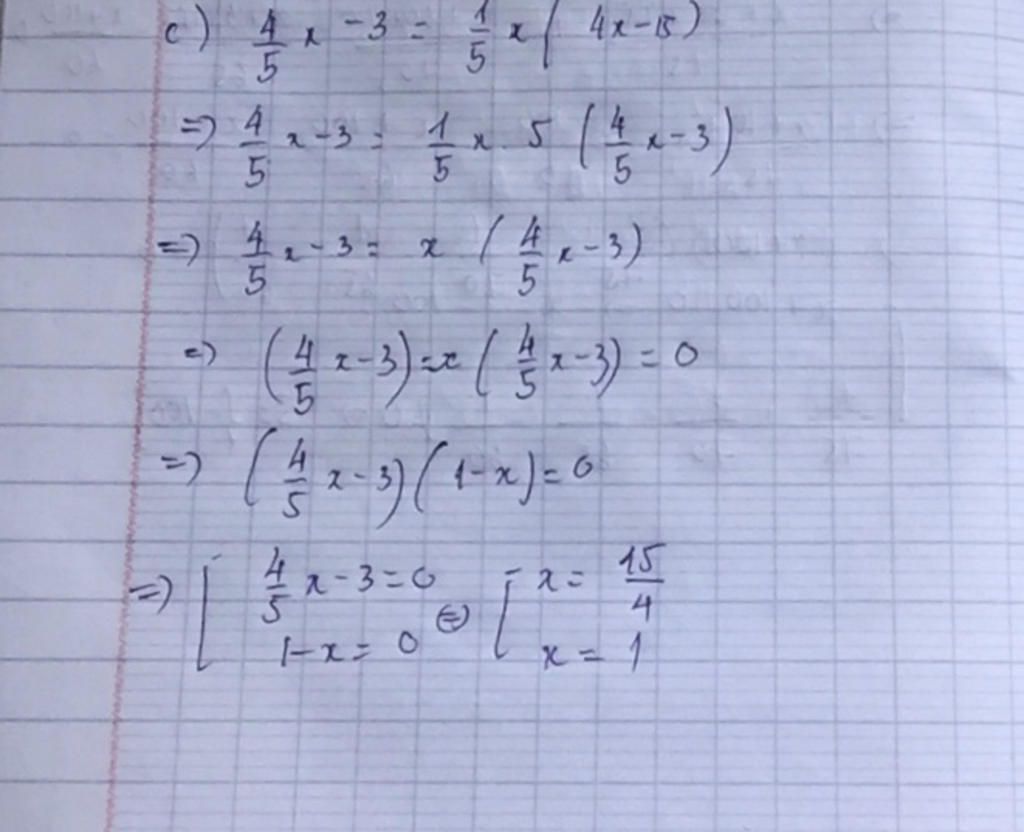 c) 4/5 x - 3 = 1/5 x ( 4x - 15)
=> 4/5 x - 3 = 1/5 x . 5 ( 4/5 x - 3)
=> 4/5 x - 3 = x ( 4/5 x - 3)
=> ( 4/5 x - 3) = x ( 4/5 x - 3) = 0
=> ( 4/5 x - 3) ( 1 - x) = 0
=> [ 4/5 x - 3 = 0 <=> [ x = 15/4
1 - x = 0 x = 1